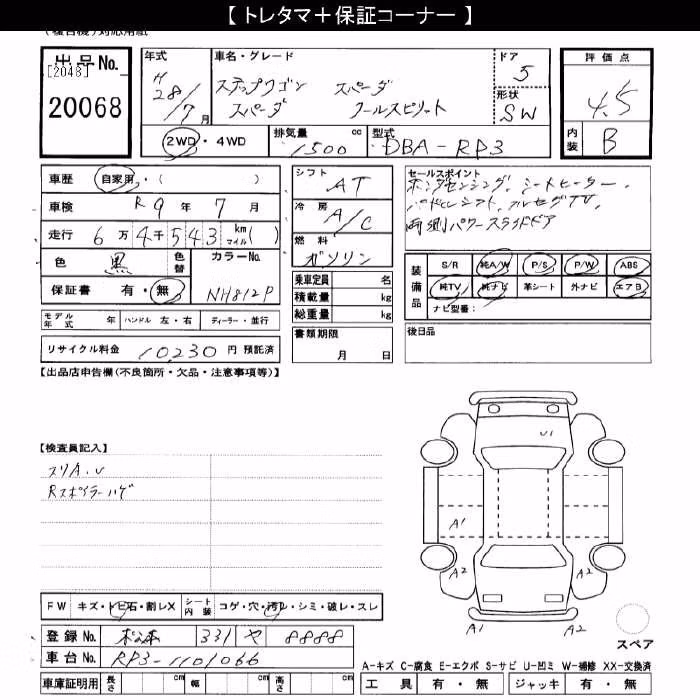 【 トレタマ＋保証コーナー 】
出品No. [2048] 20068
年式 H28/7月
車名・グレード ステップワゴン スパーダ
スパーダ クールスピリット
ドア 5
形状 SW
評価点 4.5
内装 B
2WD・4WD 排気量 1500 cc 型式 DBA-RP3
車歴 自家用・( )
車検 R 9 年 7 月
走行 6万4千543 km マイル( )
色 黒 色替 カラーNo. NH812P
保証書 有・無
モデル年式 年 ハンドル 左・右 ディーラー・並行
リサイクル料金 10,230 円 預託済
シフト AT
冷房 A/C
燃料 ガソリン
乗車定員 名
積載量 kg
総重量 kg
書類期限 月 日
セールスポイント
ホンダセンシング、シートヒーター、
パドルシフト、フルセグTV、
両側パワースライドドア
装備品 S/R 純A/W P/S P/W ABS
純TV 純ナビ 革シート 外ナビ エアB
ナビ型番：
後日品
【出品店申告欄(不良箇所・欠品・注意事項等)】
【検査員記入】
スリA.U
Rスポイラーハゲ
U1
A1
A2 A2
A1 A2
スペア
FW キズ・トビ石・割レX シート内装 コゲ・穴・汚レ・シミ・破レ・スレ
登録No. 331 や 8888
車台No. RP3-1101066
車庫証明用 長さ cm 幅 cm 高さ cm
A-キズ C-腐食 E-エクボ S-サビ U-凹ミ W-補修 XX-交換済
工具 有・無 ジャッキ 有・無